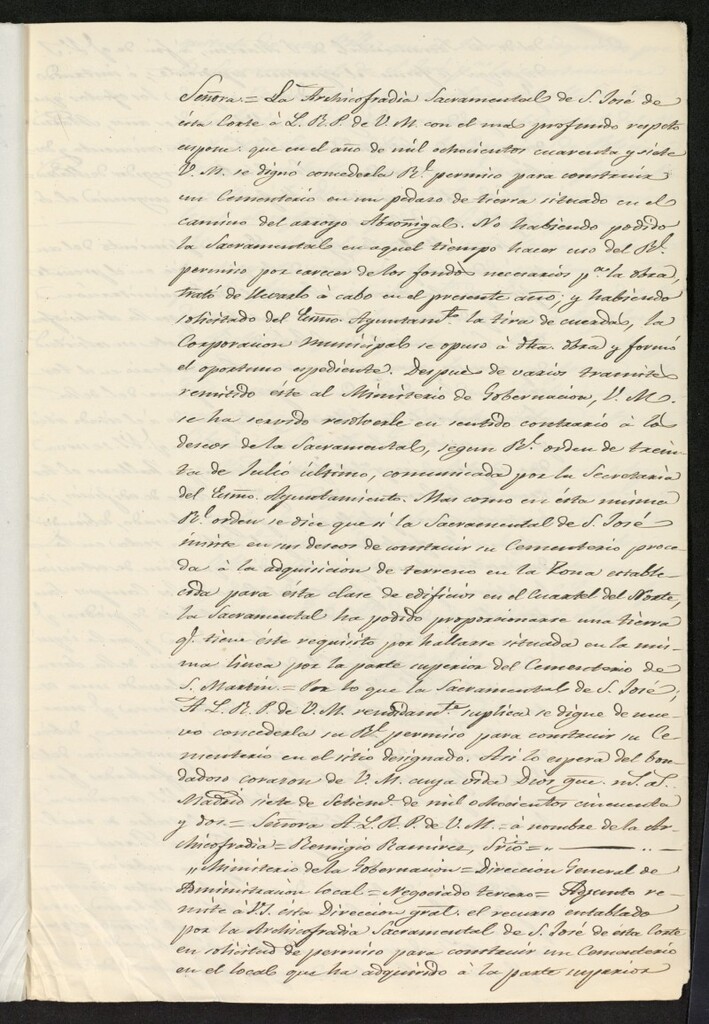 Señora = La Archicofradia Sacramental de S. José de
ésta Corte á L. R. P. de V. M. con el mas profundo respeto
espone: que en el año de mil ochocientos cuarenta y siete
V. M. se dignó concederla Rl. permiso para construir
un Cementerio en un pedazo de tierra situado en el
camino del arroyo Abroñigal. No habiendo podido
la Sacramental en aquel tiempo hacer uso del Rl.
permiso por carecer de los fondos necesarios pa. la obra,
trató de llevarlo á cabo en el presente año; y habiendo
solicitado del Exmo. Ayuntamto. la tira de cuerdas, la
Corporacion Municipal se opuso á dha. obra y formó
el oportuno espediente. Despues de varios tramites
remitido éste al Ministerio de Gobernacion, V. M.
se ha servido resolverle en sentido contrario á los
deseos de la Sacramental, segun Rl. orden de trein-
ta de Julio último, comunicada por la Secretaria
del Exmo. Ayuntamiento. Mas como en ésta misma
Rl. orden se dice que si la Sacramental de S. José
insiste en sus deseos de construir su Cementerio proce-
da á la adquisicion de terreno en la Zona estable-
cida para ésta clase de edificios en el Cuartel del Norte,
la Sacramental ha podido proporcionarse una tierra
q. tiene éste requisito por hallarse situada en la mis-
ma linea por la parte superior del Cementerio de
S. Martin. = Por lo que la Sacramental de S. José;
A L. R. P. de V. M. rendidamte. suplica se digne de nue-
vo concederla su Rl. permiso para construir su Ce-
menterio en el sitio designado. Asi lo espera del bon-
dadoso corazon de V. M. cuya vida Dios gue. ms. as.
Madrid siete de Setieme. de mil ochocientos cincuenta
y dos = Señora A L. R. P. de V. M. = á nombre de la Ar-
chicofradia = Remigio Ramirez, Srio = "
"Ministerio de la Gobernacion = Direccion General de
Administracion local = Negociado tercero = Adjunto re-
mite á V.I. ésta Direccion gral. el recurso entablado
por la Archicofradia Sacramental de S. José de ésta Corte
en solicitud de permiso para construir un Cementerio
en el local que ha adquirido á la parte superior